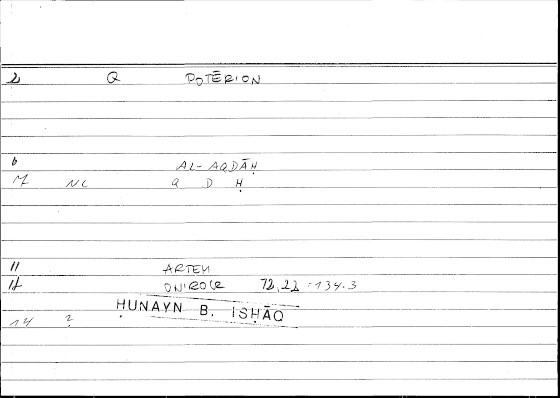 2 Q POTĒRION
6 AL-AQDĀḤ
7 NC Q D Ḥ
11 ARTEM
12 ONIROCR 72,22 = 134.3
ḤUNAYN B. ISḤĀQ
14 ?